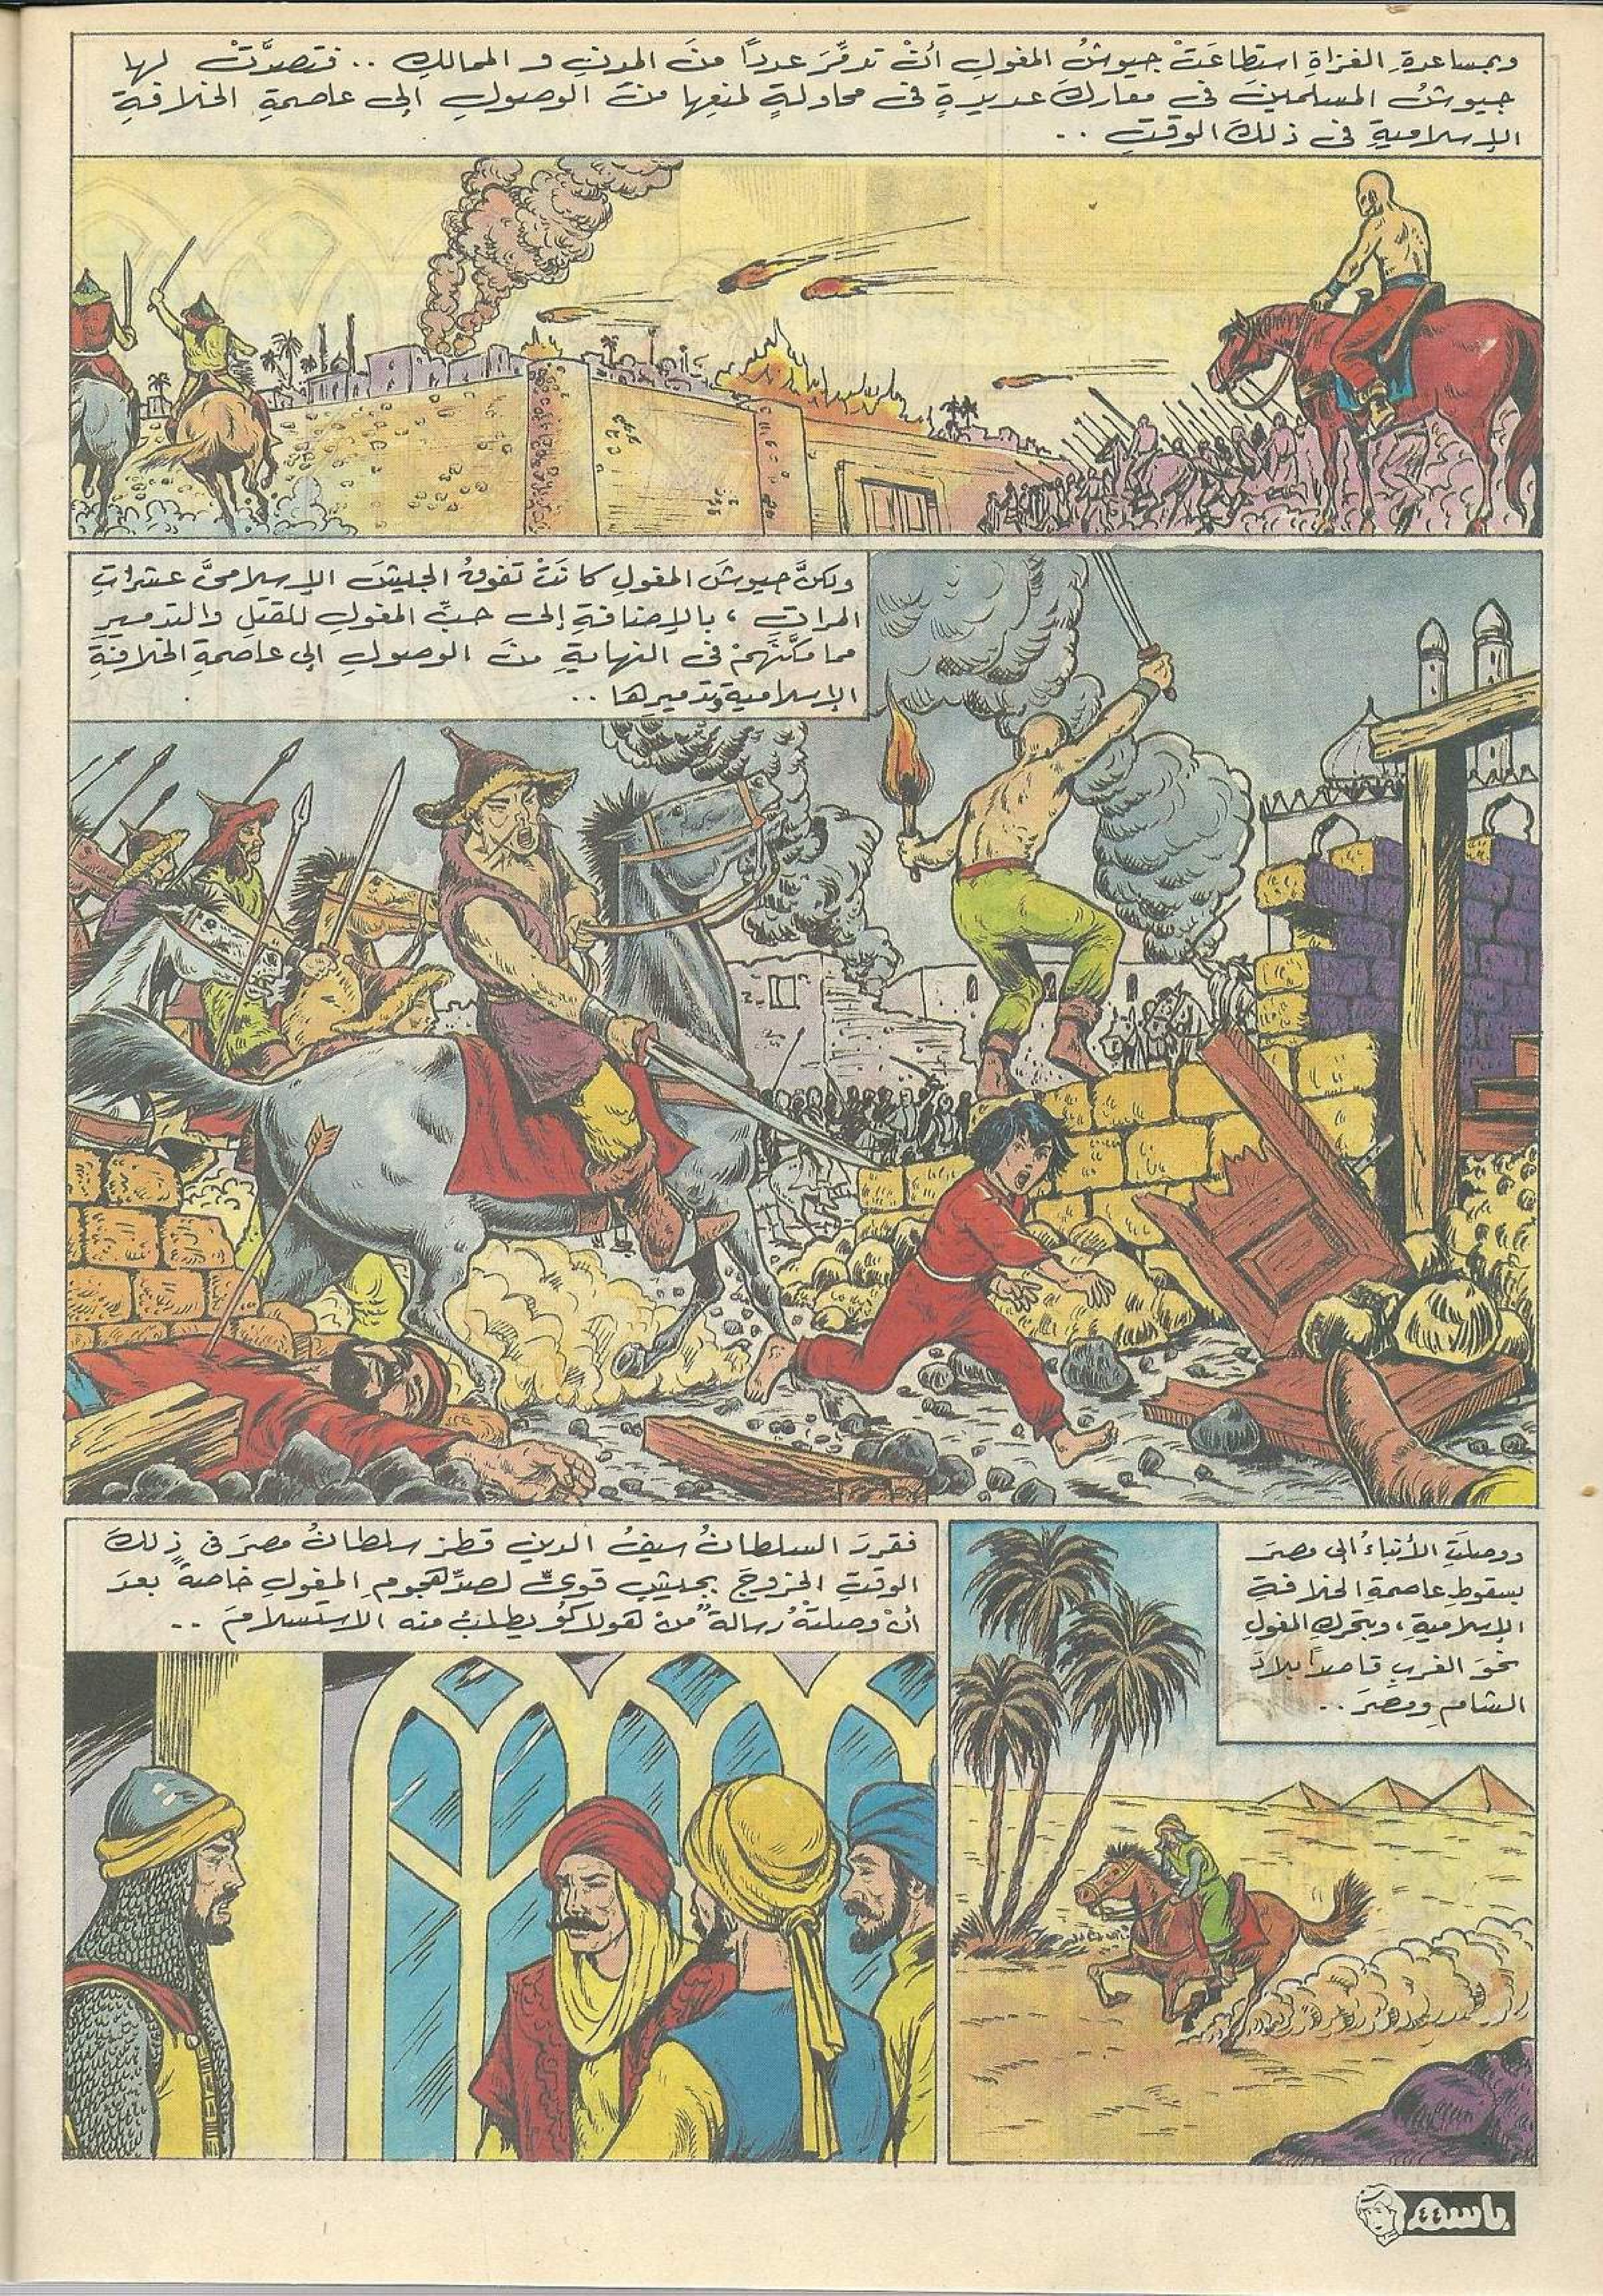 وبمساعدةِ الغزاةِ استطاعَتْ جيوشُ المغولِ أنْ تدمِّرَ عدداً منَ المدنِ و الممالكِ .. فتصدَّتْ لها
جيوشُ المسلمينَ فى معاركَ عديدةٍ فى محاولةٍ لمنعِها منَ الوصولِ إلى عاصمةِ الخلافةِ
الإسلاميةِ فى ذلكَ الوقتِ ..
ولكنَّ جيوشَ المغولِ كانَتْ تفوقُ الجيشَ الإسلامىَّ عشراتِ
المراتِ ، بالإضافةِ إلى حبِّ المغولِ للقتلِ والتدميرِ
مما مكَّنَهمْ فى النهايةِ منَ الوصولِ إلى عاصمةِ الخلافةِ
الإسلاميةِ وتدميرِها ..
ووصلَتِ الأنباءُ إلى مصرَ
بسقوطِ عاصمةِ الخلافةِ
الإسلاميةِ ، وبتحركِ المغولِ
نحوَ الغربِ قاصداً بلادَ
الشامِ ومصرَ ..
فقررَ السلطانُ سيفُ الدينِ قطز سلطانُ مصرَ فى ذلكَ
الوقتِ الخروجَ بجيشٍ قوىٍّ لصدِّ هجومِ المغولِ خاصةً بعدَ
أنْ وصلتْهُ رسالةٌ منْ هولاكو يطلبُ منه الاستسلامَ ..
باسم